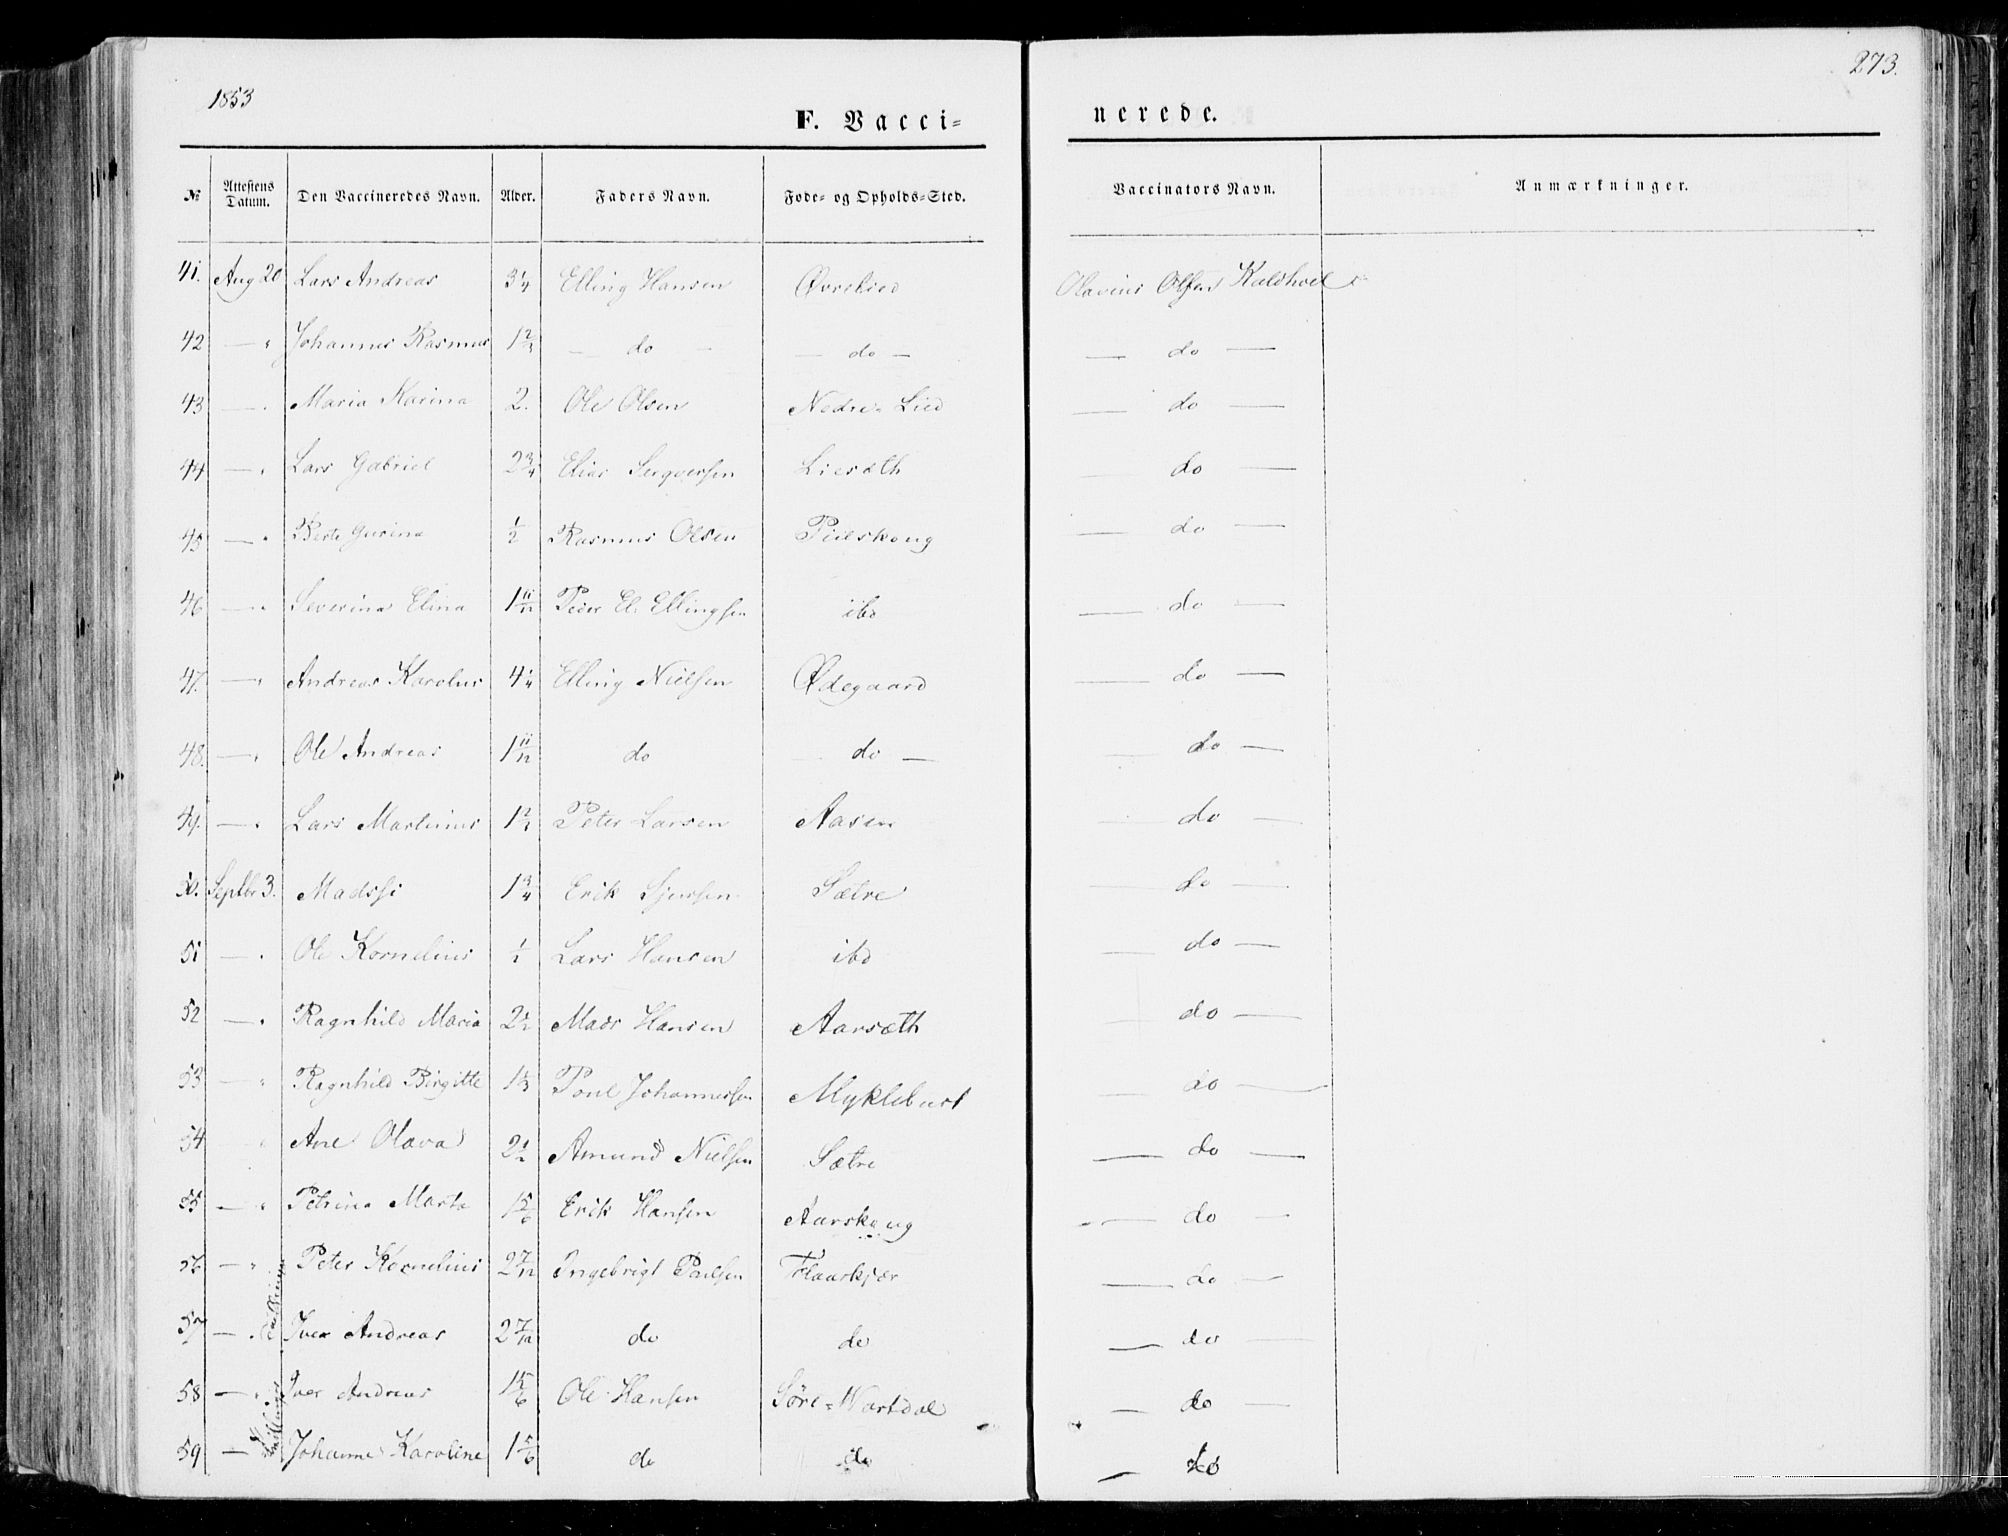 1853
273.
F. Vacci=
nerede.
№ Attestens Datum. Den Vaccineredes Navn. Alder. Faders Navn. Føde- og Opholds-Sted. Vaccinators Navn. Anmærkninger.
41. Aug 20 Lars Andreas 3 1/4 Elling Hansen Øvrelied Olavius Olsen Kaldhol
42 — " Johannes Rasmus 1 2/3 — do — — do — — do —
43 — " Maria Karina 2. Ole Olsen Nedre-Lied — do —
44 — " Lars Gabriel 2 3/4 Elias Liesæth — do —
45 — " Berte Gurina 1/2 Rasmus Olsen Pilskoug — do —
46 — " Severina Elina 1 11/12 Peder El. Ellingsen ibd — do —
47. — " Andreas Karolus 4 1/4 Elling Nielsen Ødegaard — do —
48. — " Ole Andreas 1 11/12 do do — — do —
49. — " Lars Martinus 1 2/3 Peter Larsen Aasen — do —
50. Septbr 3. Madssi 1 3/4 Erik Sætre — do —
51 — " Ole Kornelius Lars Hansen ibd — do —
52 — " Ragnhild Maria 2 1/2 Mads Hansen Aarsæth — do —
53 — " Ragnhild Birgitte Poul Johannessen Myklebust — do —
54 " Ane Olava 2 1/2 Amund Nielsen Sætre — do —
55 — " Petrina Marta 1 5/6 Erik Hansen Aarskoug — do —
56 — " Peter Kornelius 2 7/12 Ingebrigt Poulsen Flaaskjær — do —
57 — " Tvillinger Iver Andreas 2 7/12 do do — do —
58 — " Iver Andreas 1 5/6 Ole Hansen Søre-Vartdal — do —
59 — Tvillinger Johanne Karoline 1 5/6 do do — do